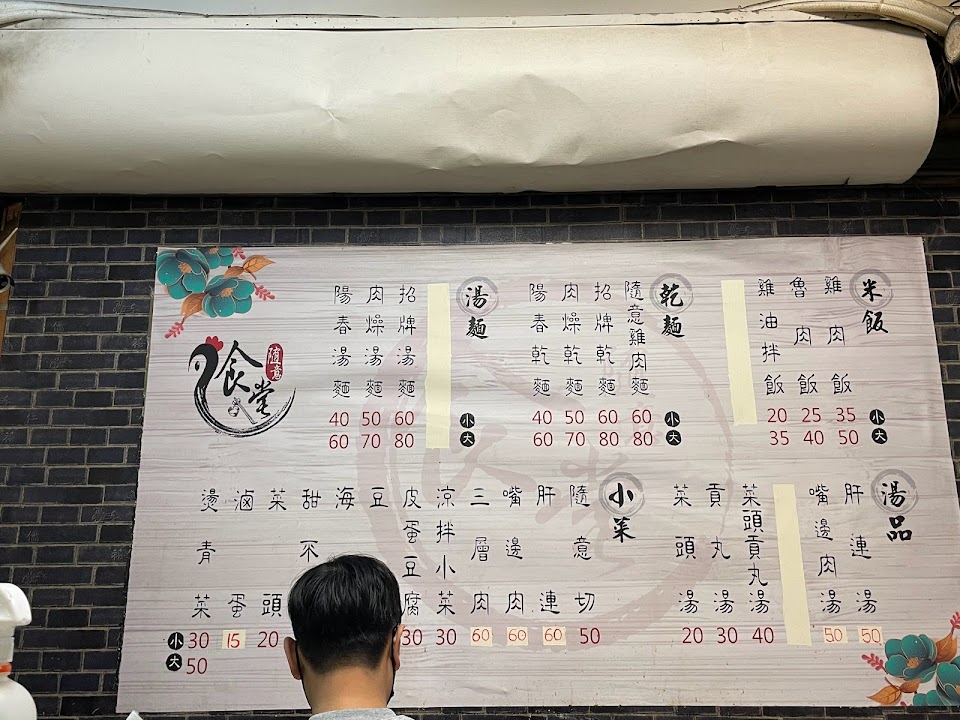 米飯
雞肉飯 35 50
魯肉飯 25 40
雞油拌飯 20 35
小
大
乾麵
隨意雞肉麵 60 80
招牌乾麵 60 80
肉燥乾麵 50 70
陽春乾麵 40 60
小
大
湯麵
招牌湯麵 60 80
肉燥湯麵 50 70
陽春湯麵 40 60
小
大
隨意
食堂
湯品
肝連湯 50
嘴邊肉湯 50
菜頭貢丸湯 40
貢丸湯 30
菜頭湯 20
小菜
隨意切 50
肝連 60
嘴邊肉 60
三層肉 60
涼拌小菜 30
皮蛋豆腐 30
豆
海
甜不
菜頭 20
滷蛋 15
燙青菜 30 50
小
大